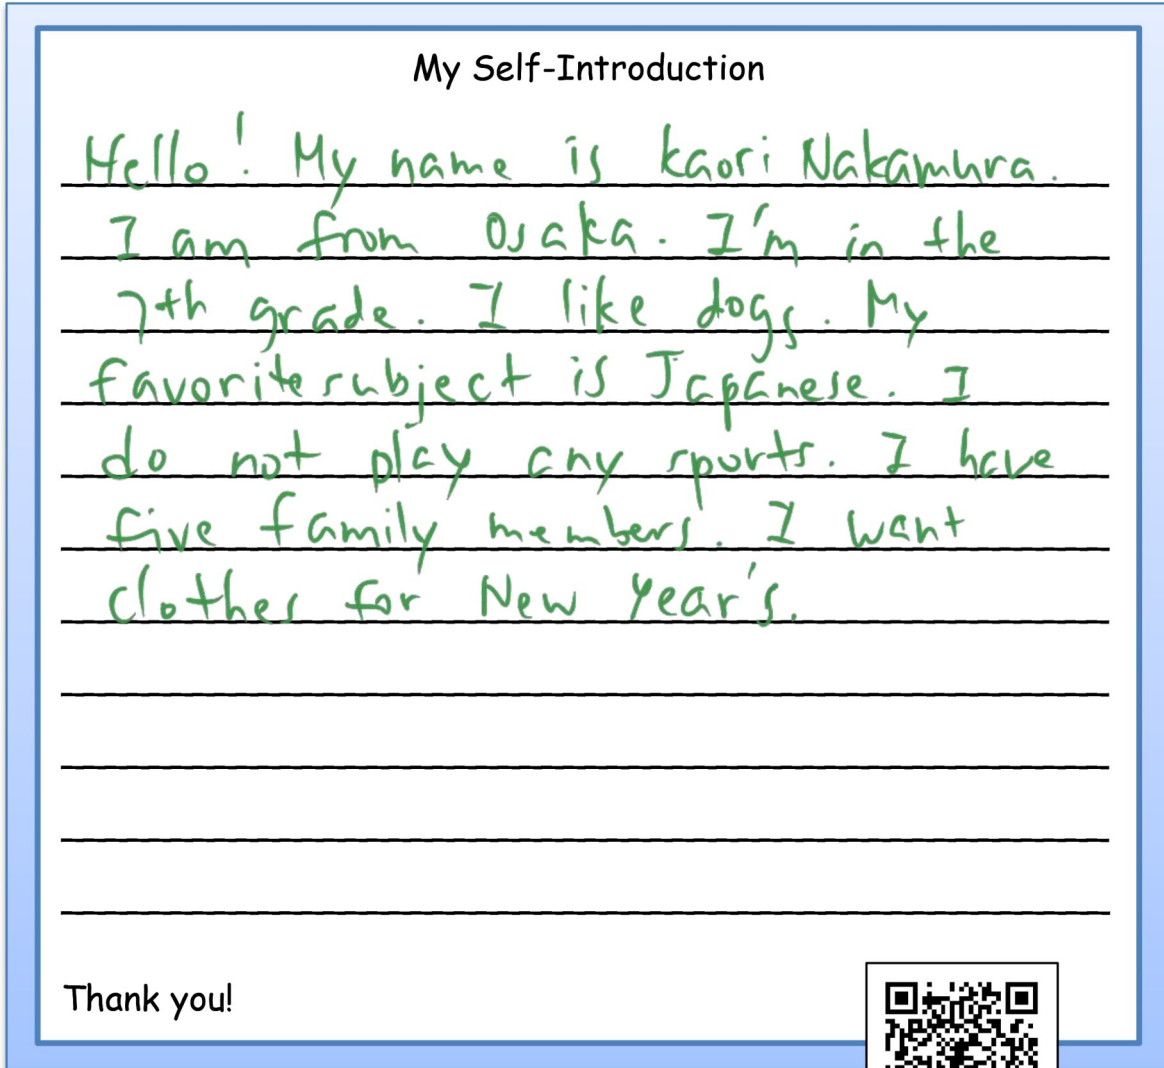 My Self-Introduction
Hello! My name is kaori Nakamura.
I am from Osaka. I'm in the
7th grade. I like dogs. My
favorite subject is Japanese. I
do not play any sports. I have
five family members. I want
clothes for New Year's.
Thank you!